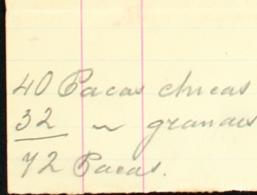 40 Pacas chicas
32 " grandes
72 Pacas.